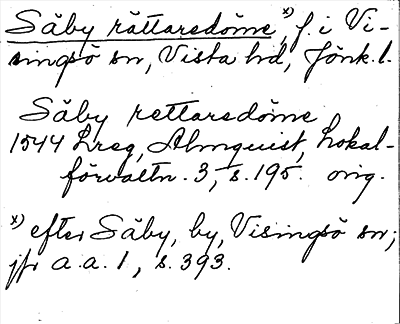 Säby rättaredöme,x) f. i Vi-
singsö sn, Vista hd, Jönk. l.
Säby rettaredöme
1544 Lreg, Almquist, Lokal-
förvaltn. 3, s. 195. orig.
x) efter Säby, by, Visingsö sn;
jfr a.a. 1, s. 393.